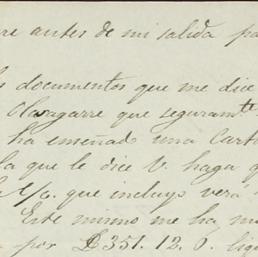 re antes de mi salida pa
s documentos que me dice
Olasagarre que seguramte
ha enseñado una Carta
la que le dice V. haga q
que incluyo verá
Este mismo me ha m
por £351.12.0. liqu